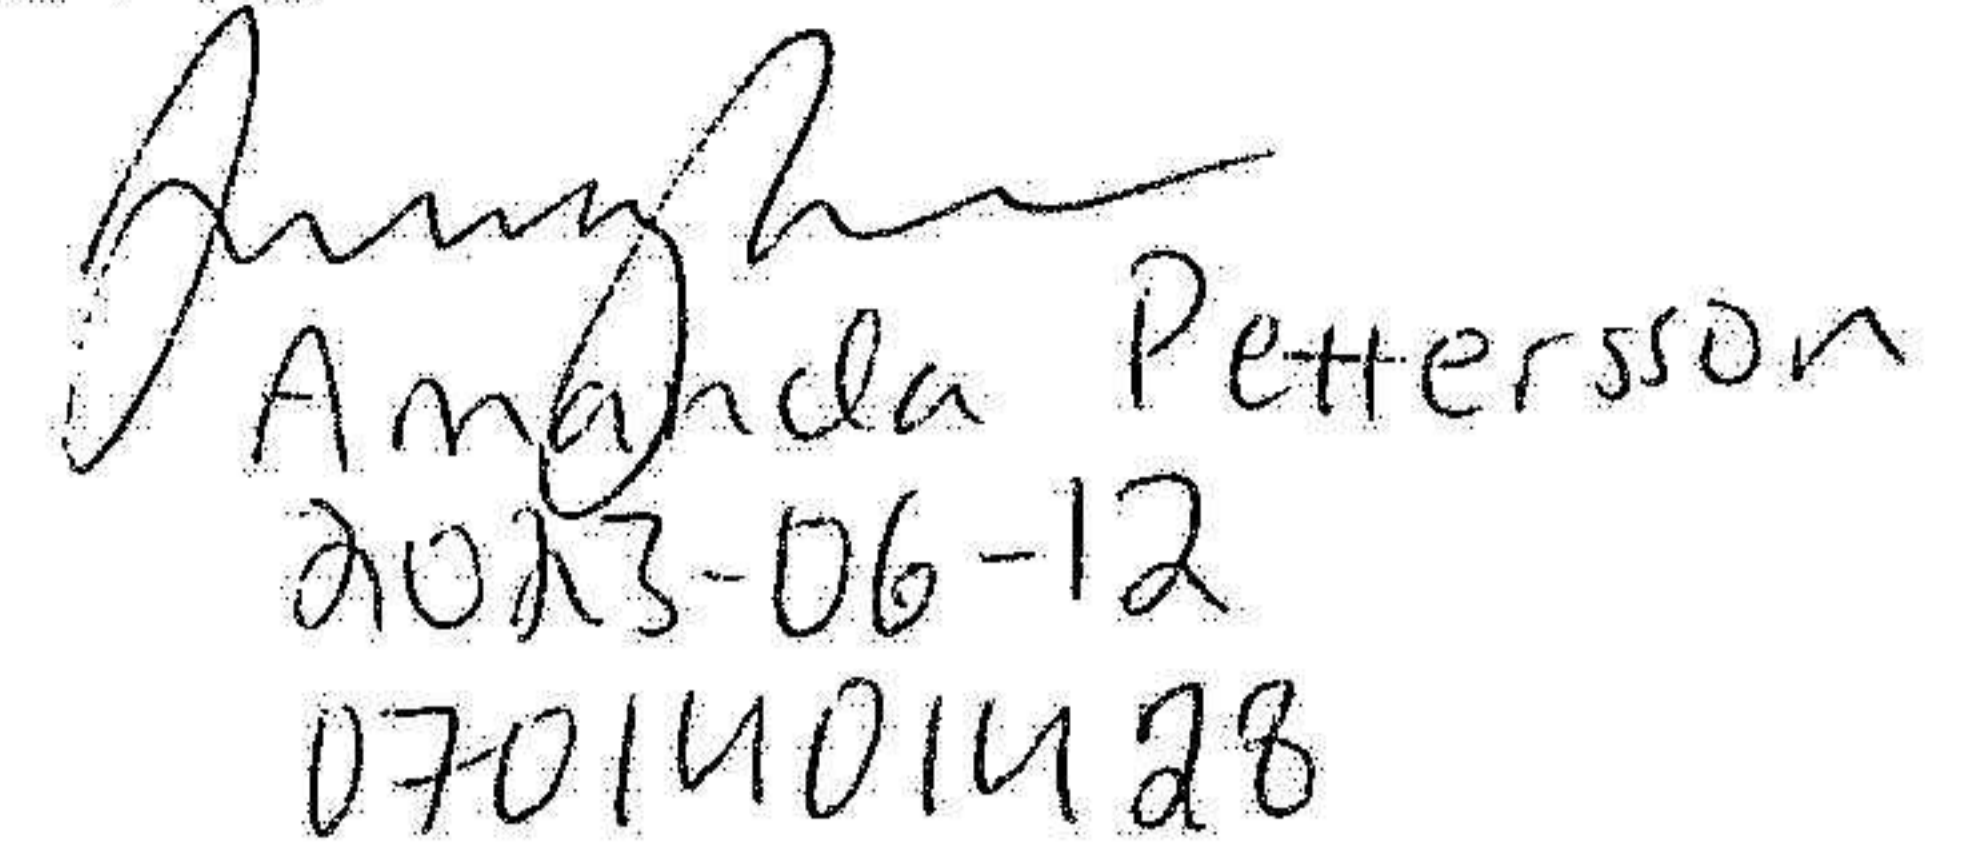 Amanda Pettersson
2023-06-12
0701401428